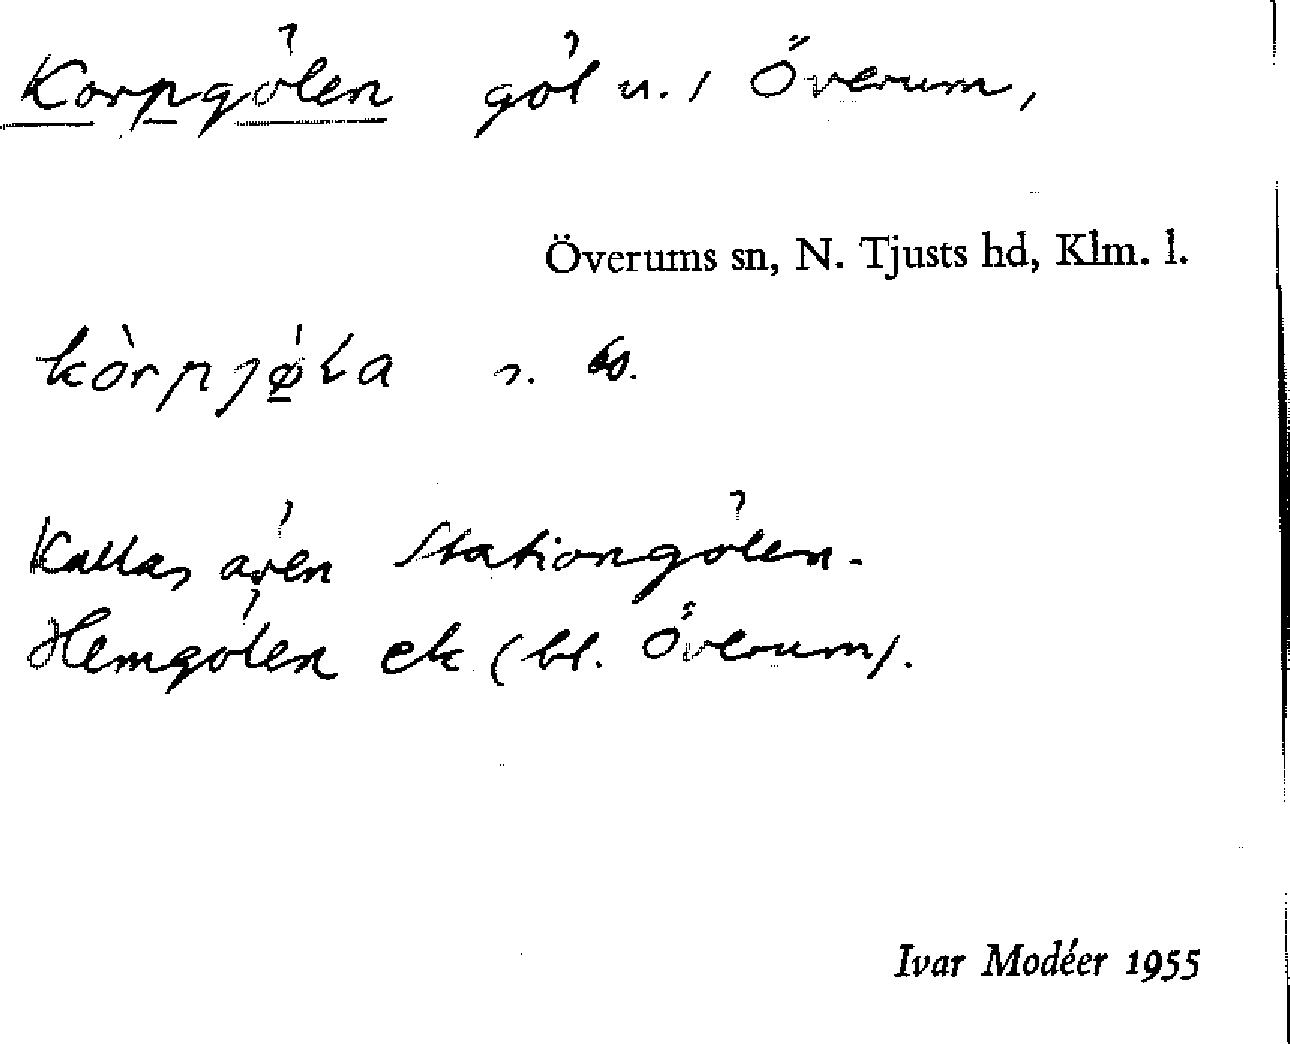 Korpgölen göl n. / Överum,
Överums sn, N. Tjusts hd, Klm. l.
kòrpjǿ̠La
Kallas även Stationgölen.
Hemgölen ek (bl. Överum).
Ivar Modéer 1955